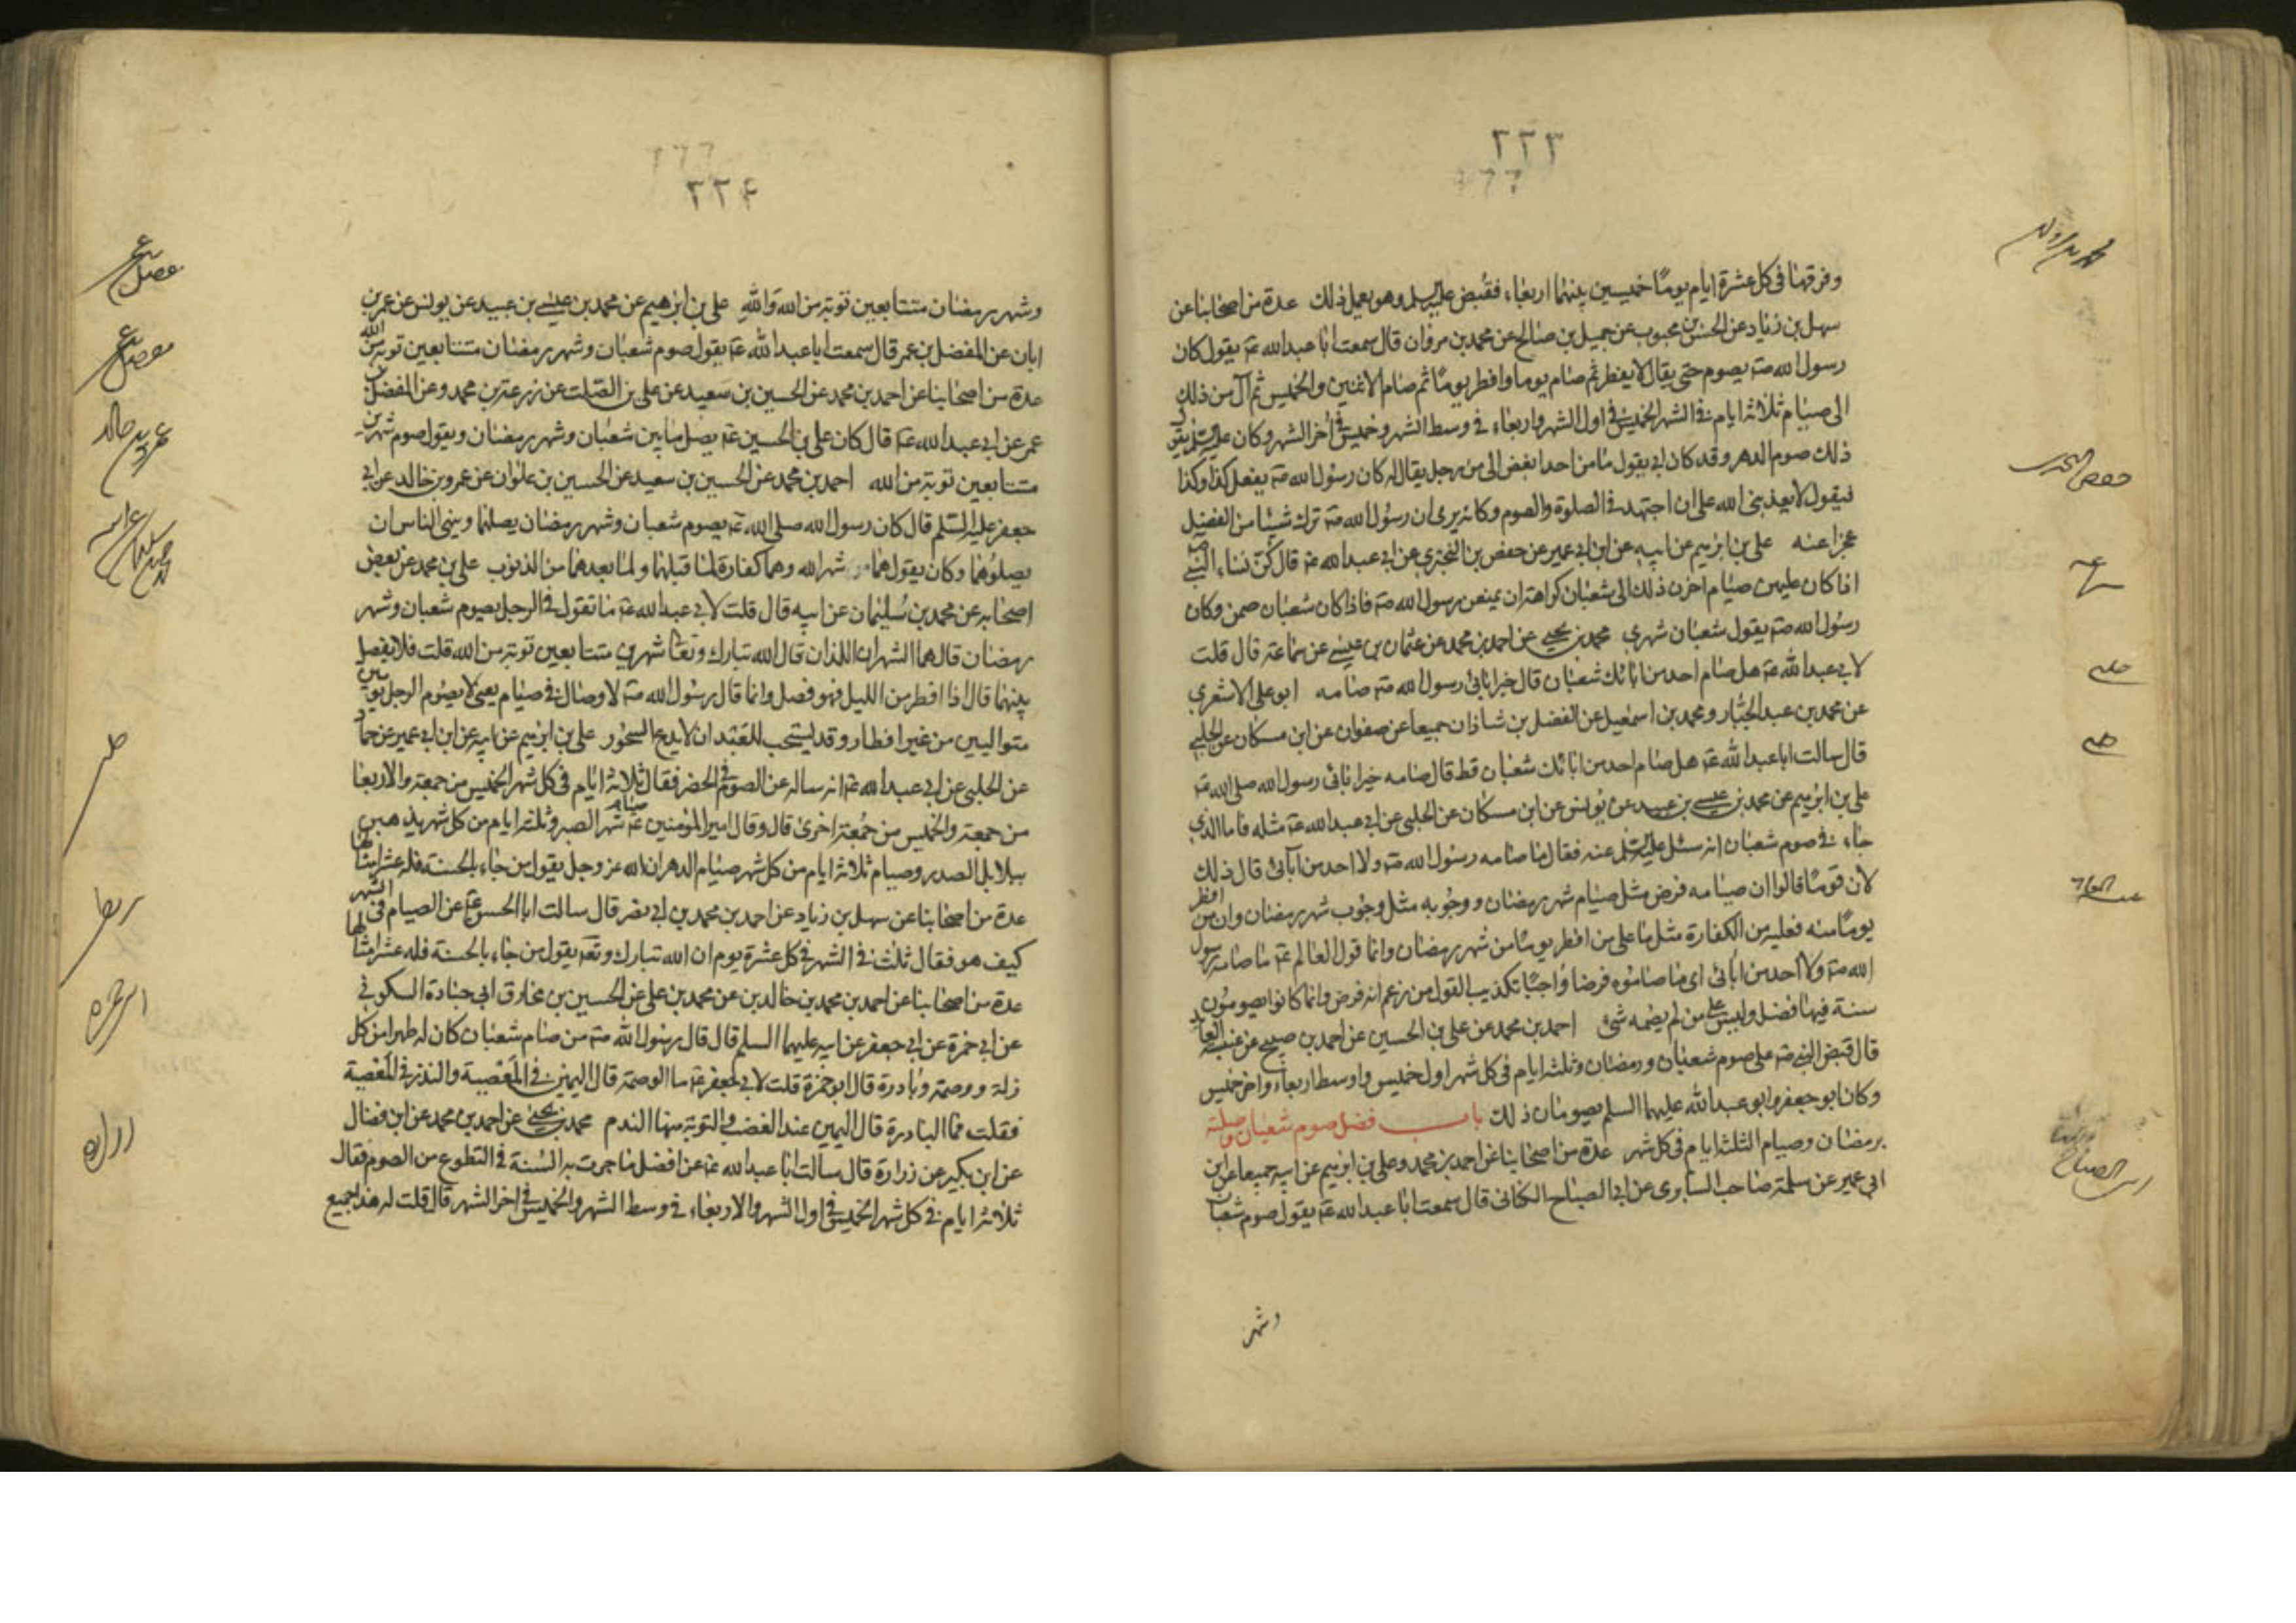 ٢٢٣
وفرقها في كل عشرة ايام يومًا خميسين بينهما اربعاء فقبض عليه السلم وهو يعمل ذلك عدة من اصحابنا عن
سهل بن زياد عن الحسن بن محبوب عن جميل بن صالح عن محمد بن مروان قال سمعت ابا عبد الله ع يقول كان
رسول الله ص يصوم حتى يقال لا يفطر ثم صام يوما وافطر يومًا ثم صام الاثنين والخميس ثم آل من ذلك
الى صيام ثلاثة ايام في الشهر الخميس في اول الشهر واربعاء في وسط الشهر وخميس في آخر الشهر وكان عليه السلم يقول
ذلك صوم الدهر وقد كان ابي يقول ما من احد ابغض الي من رجل يقال له كان رسول الله ص يفعل كذا وكذا
فيقول لا يعذبني الله على ان اجتهد في الصلوة والصوم وكانه يرى ان رسول الله ص ترك شيئا من الفضل
عجزا عنه علي بن ابرهيم عن ابيه عن ابن ابي عمير عن حفص بن البختري عن ابي عبد الله ع قال كنّ نساء النبي ص
اذا كان عليهن صيام اخرن ذلك الى شعبان كراهة ان يمنعن رسول الله ص فاذا كان شعبان صمن وكان
رسول الله ص يقول شعبان شهري محمد بن يحيى عن احمد بن محمد عن عثمان بن عيسى عن سماعة قال قلت
لابي عبد الله ع هل صام احد من ابائك شعبان قال خير ابائي رسول الله ص صامه ابو علي الاشعري
عن محمد بن عبد الجبّار ومحمد بن اسمعيل عن الفضل بن شاذان جميعا عن صفوان عن ابن مسكان عن الحلبي
قال سالت ابا عبد الله ع هل صام احد من ابائك شعبان قط قال صامه خير ابائي رسول الله صلى الله ع
علي بن ابرهيم عن محمد بن عيسى بن عبيد عن يونس عن ابن مسكان عن الحلبي عن ابي عبد الله ع مثله فاما الذي
جاء في صوم شعبان انه سئل عليه السلم عنه فقال ما صامه رسول الله ص ولا احد من آبائي قال ذلك
لان قومًا قالوا ان صيامه فرض مثل صيام شهر رمضان ووجوبه مثل وجوب شهر رمضان وان من افطر
يومًا منه فعليه من الكفارة مثل ما على من افطر يومًا من شهر رمضان وانما قول العالم ع ما صامه رسول
الله ص ولا احد من ابائي اي ما صاموه فرضا واجبًا تكذيبا لقول من زعم انه فرض وانما كانوا يصومون
سنة فيها فضل وليس على من لم يصمه شئ احمد بن محمد عن علي بن الحسين عن احمد بن صبيح عن عنبسة العابد
قال قبض النبي ص على صوم شعبان ورمضان وثلثة ايام في كل شهر اول خميس واوسط اربعاء واخر خميس
وكان ابو جعفر وابو عبد الله عليهما السلم يصومان ذلك باب فضل صوم شعبان وصلته
برمضان وصيام الثلثة ايام في كل شهر عدة من اصحابنا عن احمد بن محمد وعلي بن ابرهيم عن ابيه جميعا عن ابن
ابي عمير عن سلمة صاحب السابري عن ابي الصباح الكناني قال سمعت ابا عبد الله ع يقول صوم شعبان
وشهر
حفص البختري
سماعه
حلبي
حلبي
ابي الصباح
٢٢۴
وشهر رمضان متتابعين توبة من الله والله علي بن ابرهيم عن محمد بن عيسى بن عبيد عن يونس عن عمر بن
ابان عن المفضل بن عمر قال سمعت ابا عبد الله ع يقول صوم شعبان وشهر رمضان متتابعين توبة من الله
عدة من اصحابنا عن احمد بن محمد عن الحسين بن سعيد عن علي بن الصّلت عن زرعة بن محمد وعن المفضل بن
عمر عن ابي عبد الله ع قال كان علي بن الحسين ع يصل ما بين شعبان وشهر رمضان ويقول صوم شهرين
متتابعين توبة من الله احمد بن محمد عن الحسين بن سعيد عن الحسين بن علوان عن عمرو بن خالد عن ابي
جعفر عليه السّلم قال كان رسول الله صلى الله ع يصوم شعبان وشهر رمضان يصلهما وينهى الناس ان
يصلوهما وكان يقول هما شهر الله وهما كفارة لما قبلهما ولما بعدهما من الذنوب علي بن محمد عن بعض
اصحابه عن محمد بن سُليمان عن ابيه قال قلت لابي عبد الله ع ما تقول في الرجل يصوم شعبان وشهر
رمضان قال هما الشهران اللذان قال الله تبارك وتعالى شهرين متتابعين توبة من الله قلت فلا يفصل
بينهما قال اذا افطر من الليل فهو فصل وانما قال رسول الله ص لا وصال في صيام يعني لا يصوم الرجل يومين
متواليين من غير افطار وقد يستحب للعبد ان لا يدع السحور علي بن ابرهيم عن ابيه عن ابن ابي عمير عن حماد
عن الحلبي عن ابي عبد الله ع انه ساله عن الصوم في الحضر فقال ثلاثة ايام في كل شهر الخميس من جمعة والاربعا
من جمعة والخميس من جُمعة اخرى قال وقال امير المؤمنين ع صيام شهر الصبر وثلثة ايام من كل شهر يذهبن
ببلابل الصدر وصيام ثلاثة ايام من كل شهر صيام الدهر ان الله عز وجل يقول من جاء بالحسنة فله عشر امثالها
عدة من اصحابنا عن سهل بن زياد عن احمد بن محمد بن ابي نصر قال سالت ابا الحسن ع عن الصيام في الشهر
كيف هو فقال ثلث في الشهر في كل عشرة يوم ان الله تبارك وتعه يقول من جاء بالحسنة فله عشر امثالها
عدة من اصحابنا عن احمد بن محمد بن خالد بن عن محمد بن علي عن الحسين بن مخارق ابي جنادة السكوني
عن ابي حمزة عن ابي جعفر عن ابيه عليهما السلم قال قال رسول الله ص من صام شعبان كان له طهرا من كل
زلة ووصمة وبادرة قال ابو حمزة قلت لابي جعفر ع ما الوصمة قال اليمين في المَعْصِية والنذر في المَعْصِية
فقلت فما البادرة قال اليمين عند الغضب والتوبة منها الندم محمد بن يحيى عن احمد بن محمد عن ابن فضال
عن ابن بكير عن زرارة قال سالت ابا عبد الله ع عن افضل ما جرت به السُنة في التطوع من الصوم فقال
ثلاثة ايام في كل شهر الخميس في اول الشهر والاربعاء في وسط الشهر والخميس في اخر الشهر قال قلت له هذا جميع
عمرو بن خالد
ابي حمزه
زراره